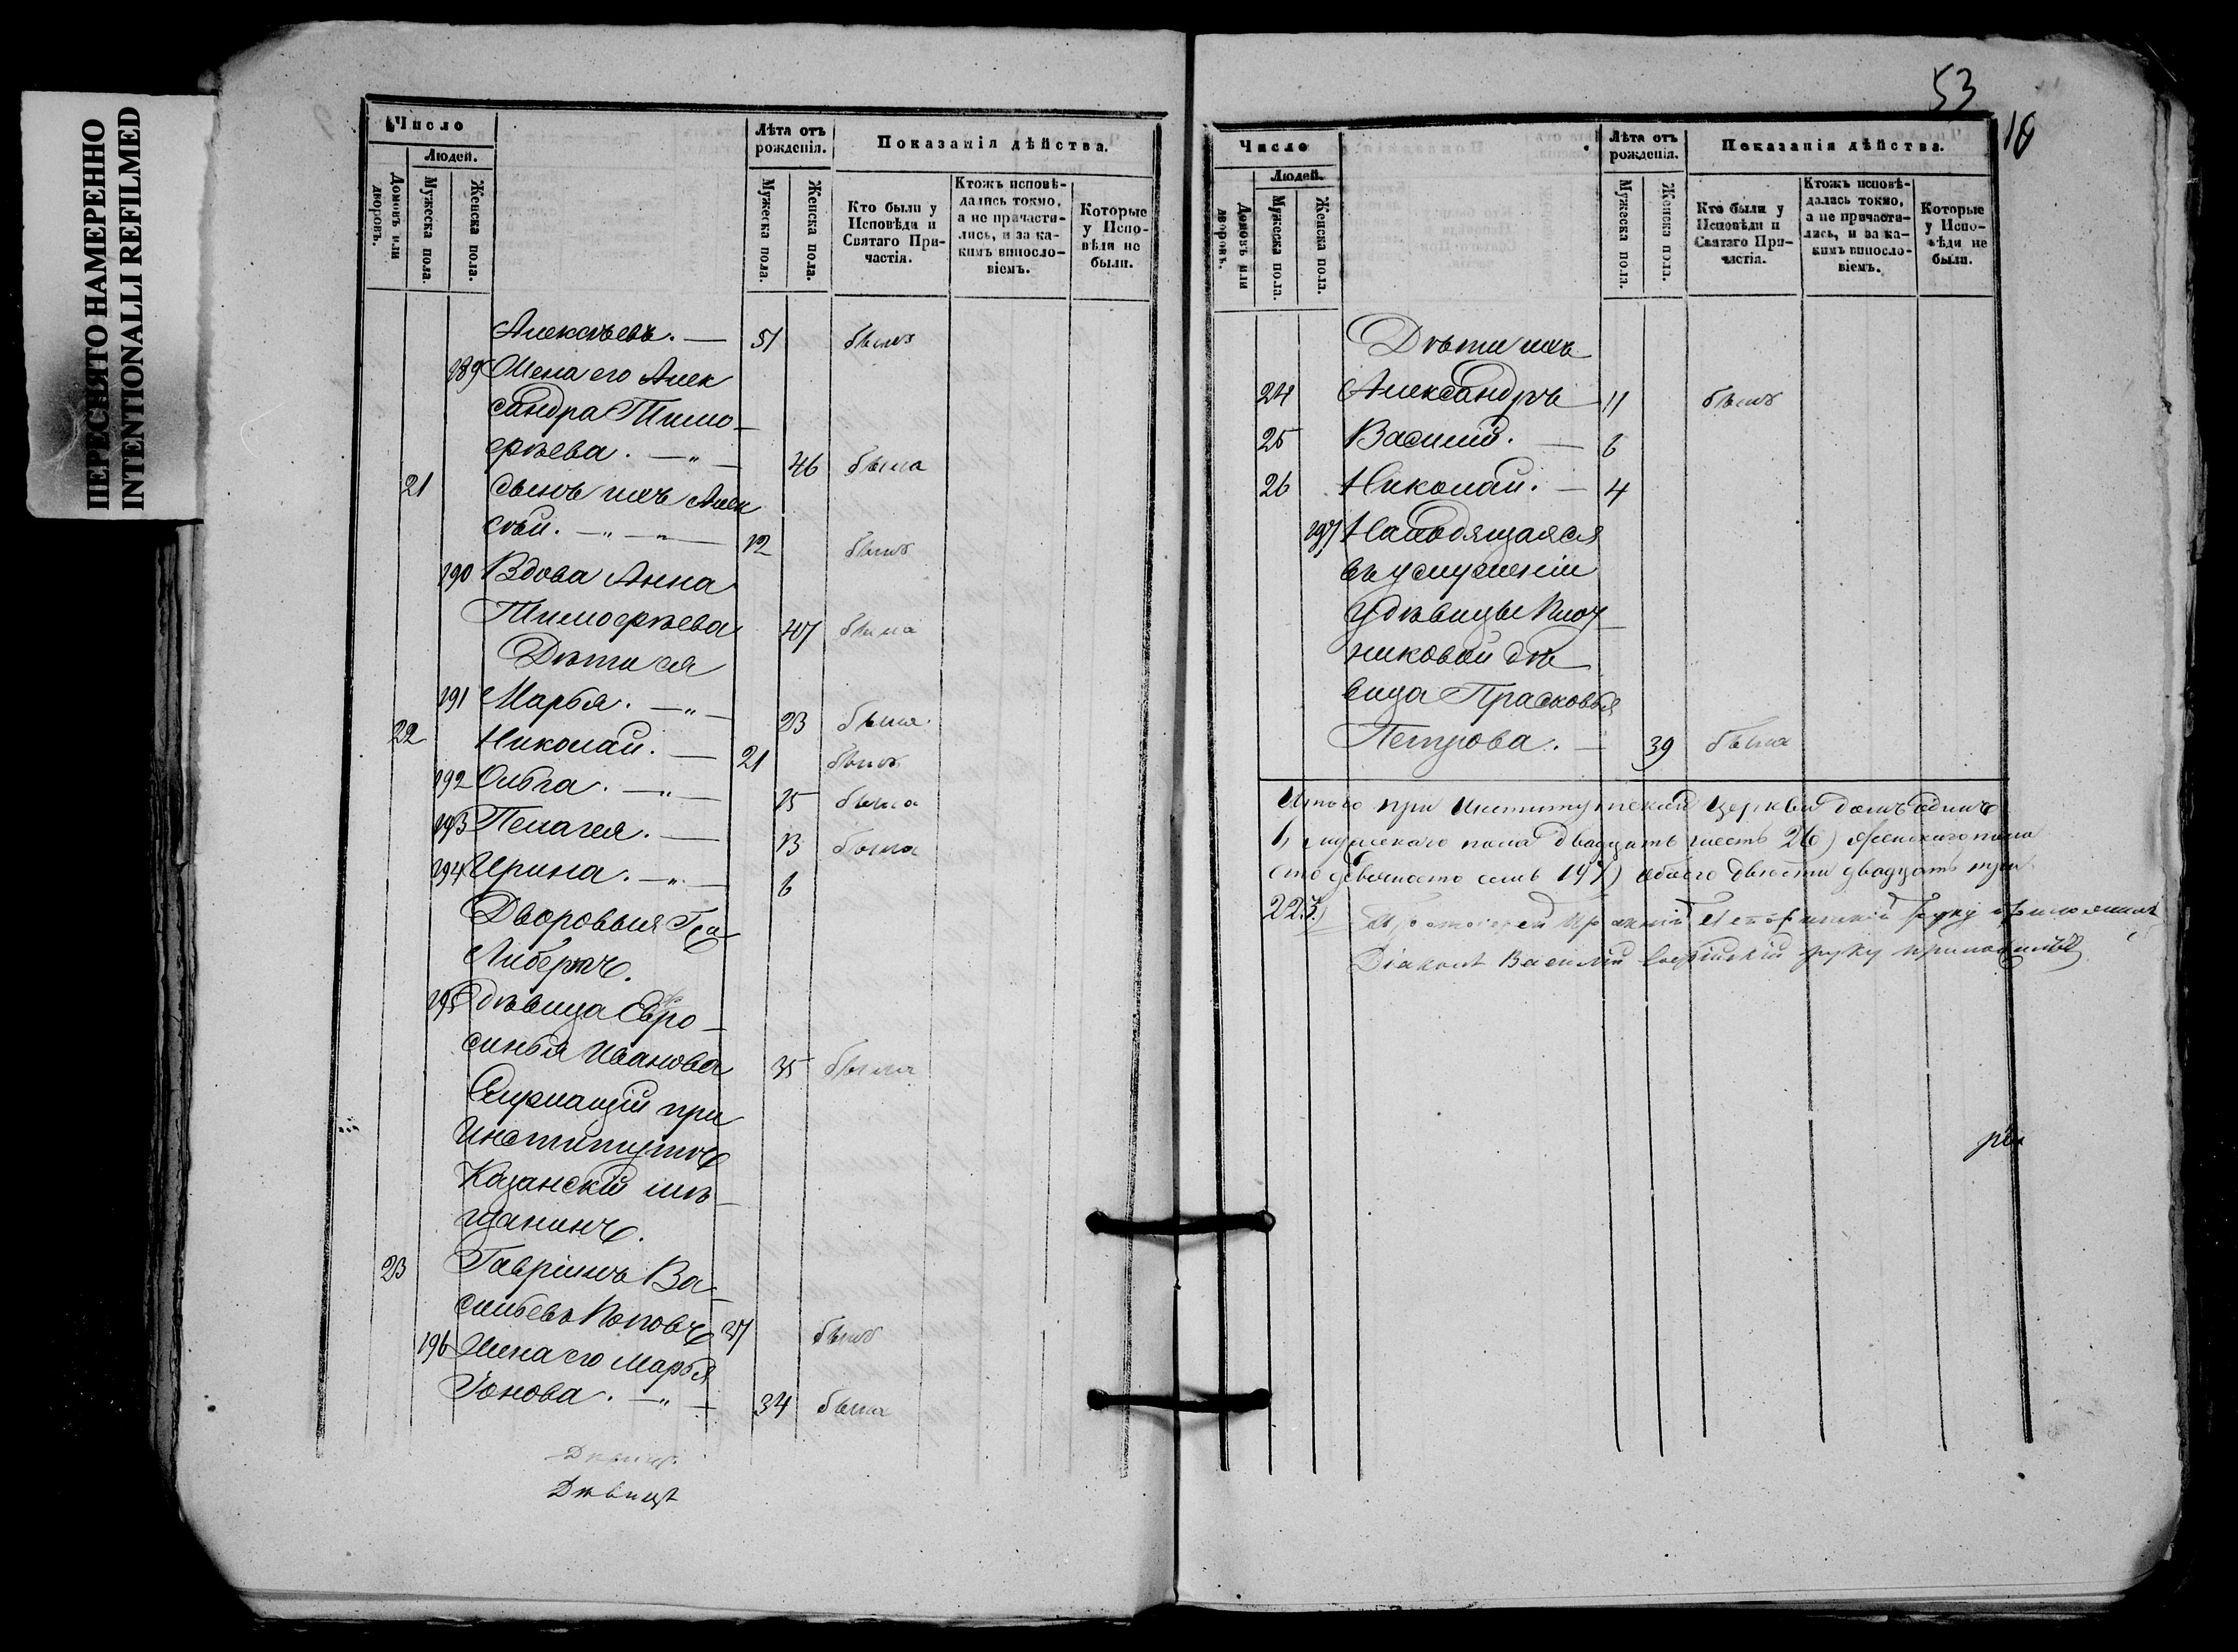 ПЕРЕСНЯТО НАМЕРЕННО
INTENTIONALLI REFILMED
Число
Людей.
Домовъ или дворовъ.
Мужеска пола.
Женска пола.
Лѣта отъ рожденія.
Мужеска пола.
Женска пола.
Показанія дѣйства.
Кто были у Исповѣди и Святаго Причастія.
Ктожъ исповѣдались токмо, а не причастились, и за какимъ винословіемъ.
Которые у Исповѣди не были.
Алексѣевъ. — 51 былъ
189 Жена его Алек
сандра Тимо-
фѣева. — " — 46 была
21 Сынъ ихъ Алек
сѣй. — " — " — 12 былъ
190 Вдова Анна
Тимофѣева 47 была
Дѣти ея
191 Марья. — " — 23 была
22 Николай. — 21 былъ
192 Ольга. — " — 15 была
193 Пелагея. — 13 была
194 Ирина. — " — 6
Дворовыя Гра
Либертъ.
195 Дѣвица Евфро-
синья Иванова 35 была
Служащій при
Институтѣ
Казанскій мѣ-
щанинъ.
23 Гавріилъ Ва-
сильевъ Поповъ 37 былъ
196 Жена его Марья
Іонова. — " — 34 была
Дѣвицъ
53
10
Число
Людей.
Домовъ или дворовъ.
Мужеска пола.
Женска пола.
Лѣта отъ рожденія.
Мужеска пола.
Женска пола.
Показанія дѣйства.
Кто были у Исповѣди и Святаго Причастія.
Ктожъ исповѣдались токмо, а не причастились, и за какимъ винословіемъ.
Которые у Исповѣди не были.
Дѣти ихъ
24 Александръ — 11 былъ
25 Василій. — 6
26 Николай. — 4
197 Находящаяся
въ услуженіи
у дѣвицы Ключ-
никовой дѣ-
вица Прасковья
Петрова. — 39 была
Итого при Институтской Церкви домъ одинъ
1, мужескаго пола двадцать шесть 26) женскаго пола
сто девяносто семь 197) обоего двѣсти двадцать три
223) Протоіерей руку приложилъ
Діаконъ Василій руку приложилъ